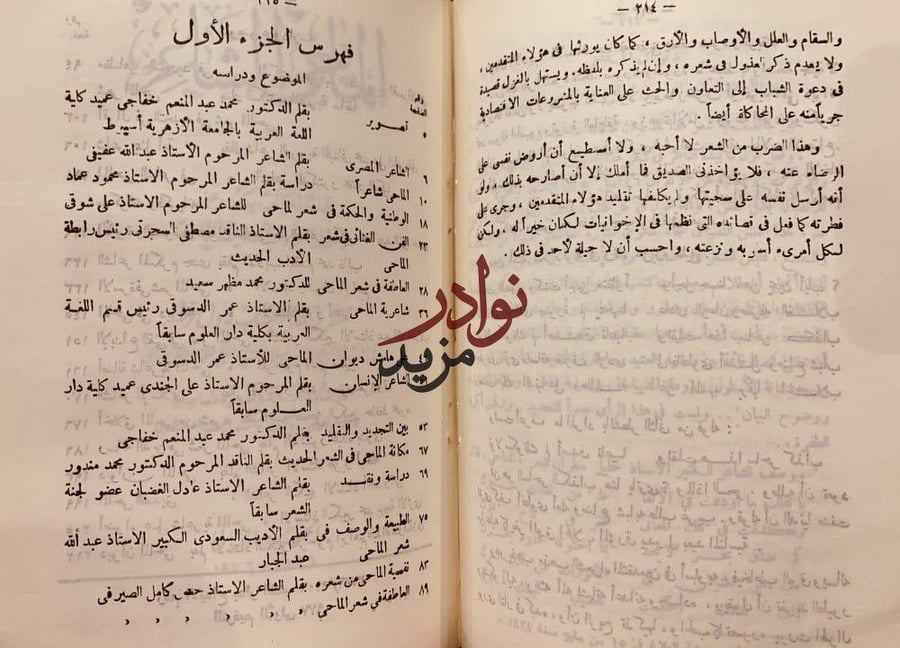 — ٢١٤ —
والسقام والعلل والأوصاب والأرق ، كما كان يورثها فى هؤلاء المتقدمين ،
ولا يعدم ذكر العذول فى شعره ، وإن لم يذكره بلفظه . ويستهل بالغزل قصيدة
فى دعوة الشباب إلى التعاون والحث على العناية بالمشروعات الاقتصادية
جريا منه على المحاكاة أيضاً .
وهذا الضرب من الشعر لا أحبه ، ولا أستطيع أن أروض نفسى على
الرضاء عنه ، فلا يؤاخذنى الصديق فما أملك إلا أن أصارحه بذلك ، ولو
أنه أرسل نفسه على سجيتها ولم يكلفها تقليد هؤلاء المتقدمين ، وجرى على
فطرته كما فعل فى قصائده التى نظمها فى الإخوانيات لكان خيرا له . ولكن
لكل أمرىء أسلوبه ونزعته ، واحسب أن لا حيلة لأحد فى ذلك .
فهرس الجزء الأول
رقم الصفحة
الموضوع ودراسه
٥ تصوير بقلم الدكتور محمد عبد المنعم خفاجى عميد كلية
اللغة العربية بالجامعة الأزهرية أسيوط
٦ الشاعر المصرى بقلم الشاعر المرحوم الأستاذ عبد الله عفيفى
١٠ الماحى شاعراً دراسة بقلم الشاعر المرحوم الاستاذ محمود عماد
١٨ الوطنية والحكمة فى شعر لماحى للشاعر المرحوم الاستاذ على شوقى
٢٣ الفن الغنائى فى شعر بقلم الاستاذ الناقد مصطفى السحرتى رئيس رابطة
الماحى الأدب الحديث
٢٨ العاطفة فى شعر الماحى للدكتور محمد مظهر سعيد
٣٦ شاعرية الماحى بقلم الأستاذ عمر الدسوقى رئيس قسم اللغة
العربية بكلية دار العلوم سابقاً
هامش ديوان الماحى للأستاذ عمر الدسوقى
الشاعر الإنسان بقلم المرحوم الاستاذ على الجندى عميد كلية دار
العلوم سابقاً
٥٣ بين التجديد والتقليد بقلم الدكتور محمد عبد المنعم خفاجى
٦٧ مكانة الماحى فى الشعر الحديث بقلم الناقد المرحوم الدكتور محمد مندور
٦٩ دراسة ونقد بقلم الشاعر الاستاذ عادل الغضبان عضو لجنة
الشعر سابقاً
٧٥ الطبيعة والوصف فى بقلم الأديب السعودى الكبير الاستاذ عبد الله
شعر الماحى عبد الجبار
٨٣ نفسية الماحى من شعره بقلم الشاعر الاستاذ حسن كامل الصيرفى
٨٩ العاطفة فى شعر الماحى » » » » »
نوادر
مزيد